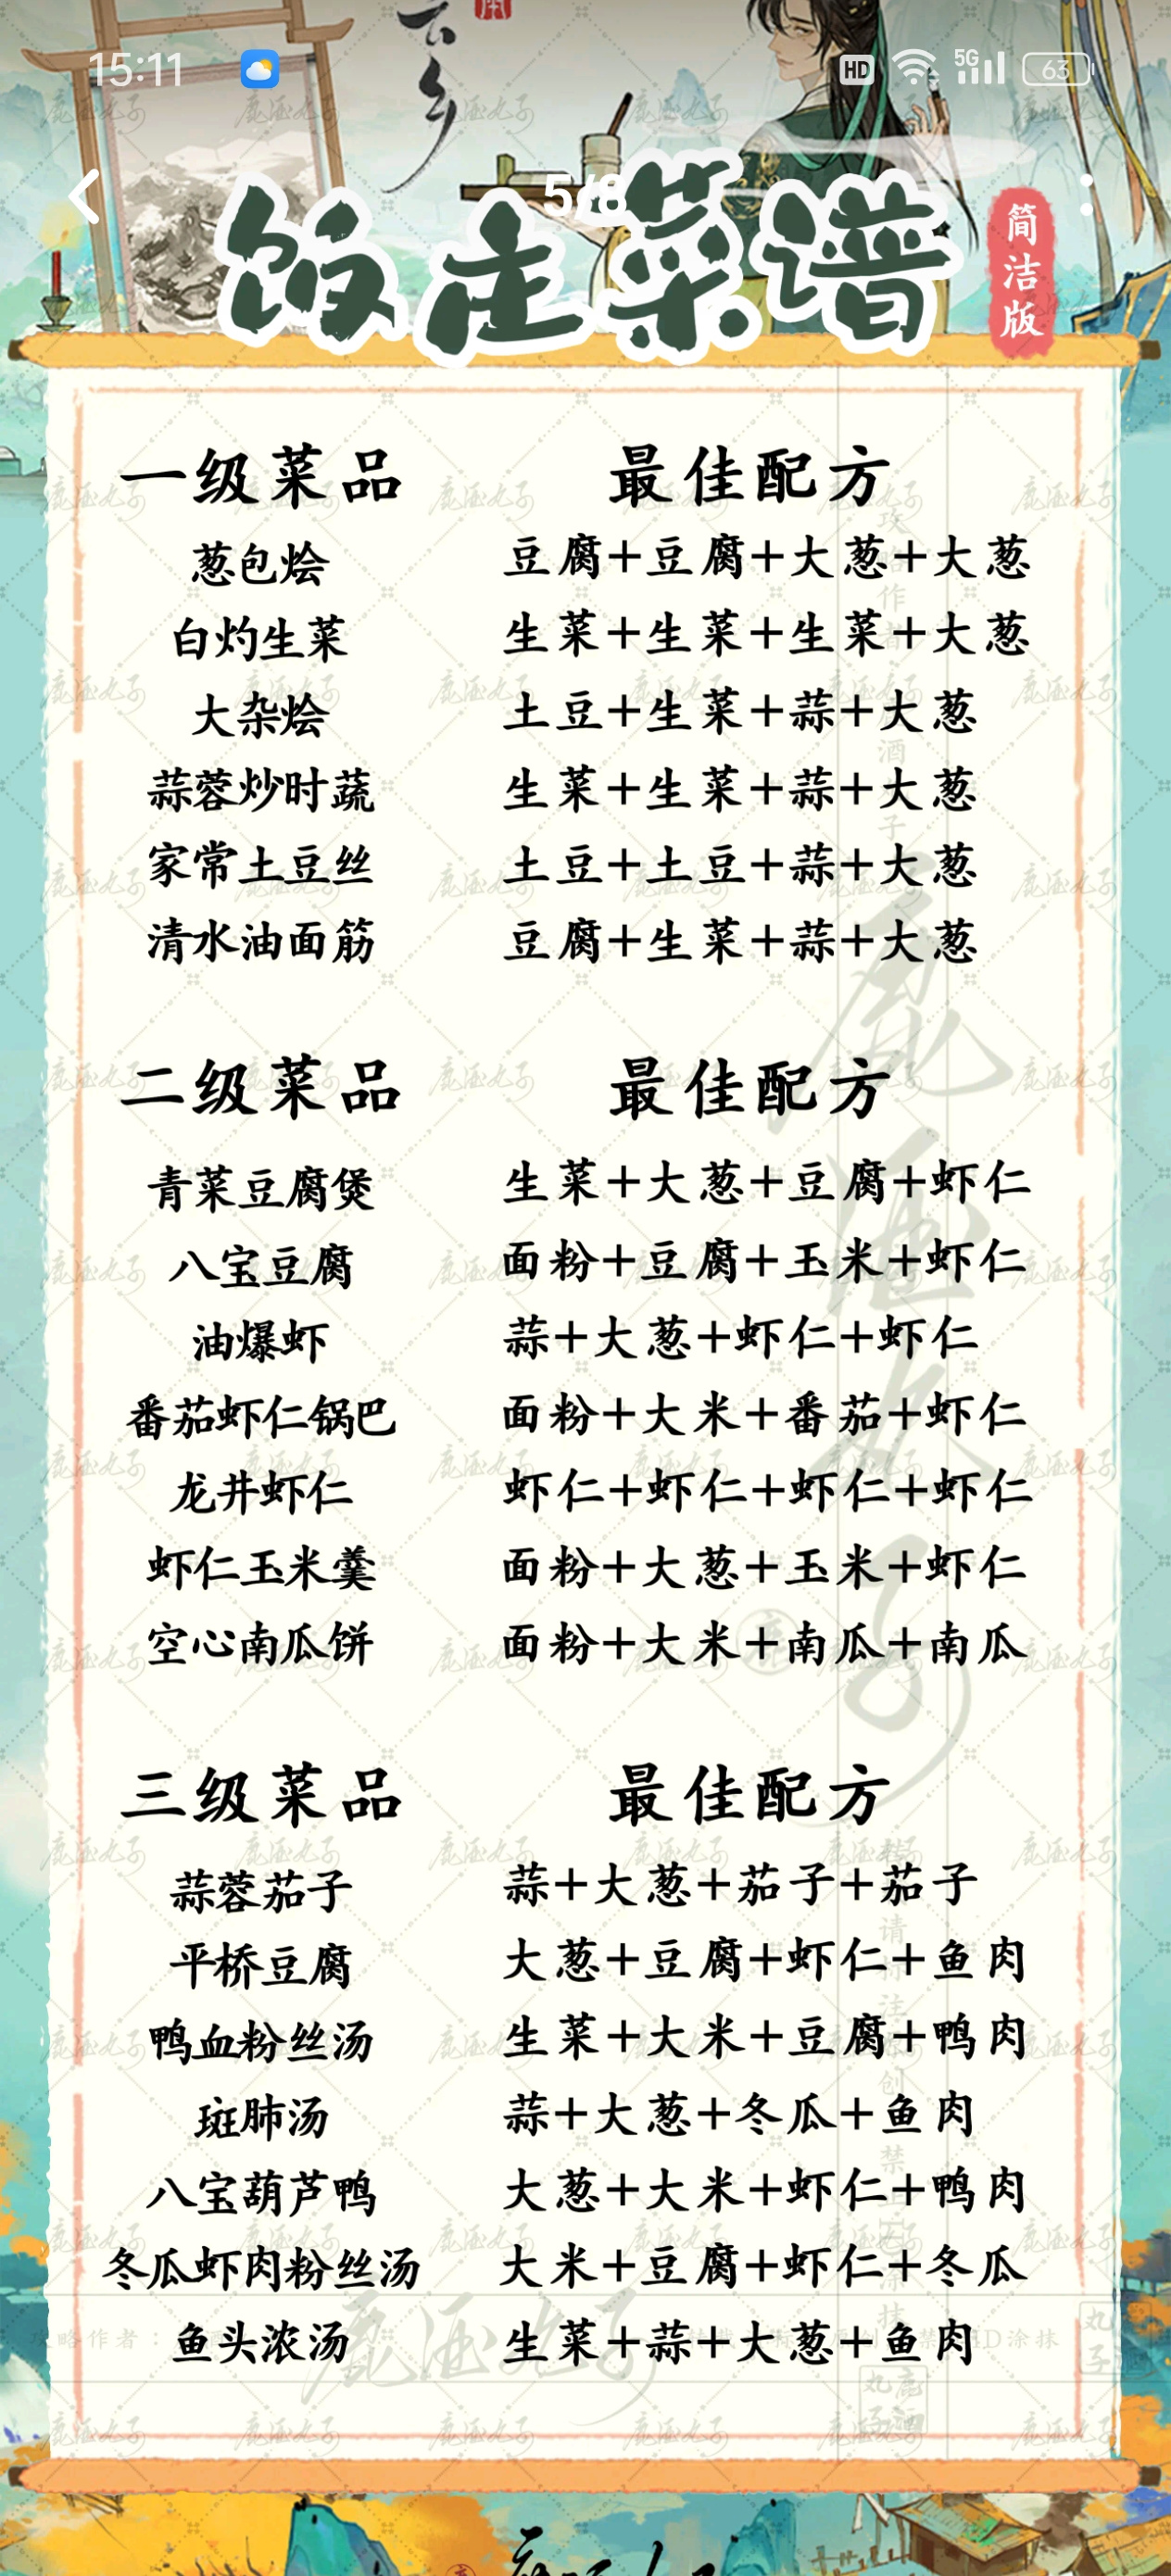 15:11
HD 5G 63
云乡
5/8
饭走菜谱
简洁版
一级菜品 最佳配方
葱包烩 豆腐+豆腐+大葱+大葱
白灼生菜 生菜+生菜+生菜+大葱
大杂烩 土豆+生菜+蒜+大葱
蒜蓉炒时蔬 生菜+生菜+蒜+大葱
家常土豆丝 土豆+土豆+蒜+大葱
清水油面筋 豆腐+生菜+蒜+大葱
二级菜品 最佳配方
青菜豆腐煲 生菜+大葱+豆腐+虾仁
八宝豆腐 面粉+豆腐+玉米+虾仁
油爆虾 蒜+大葱+虾仁+虾仁
番茄虾仁锅巴 面粉+大米+番茄+虾仁
龙井虾仁 虾仁+虾仁+虾仁+虾仁
虾仁玉米羹 面粉+大葱+玉米+虾仁
空心南瓜饼 面粉+大米+南瓜+南瓜
三级菜品 最佳配方
蒜蓉茄子 蒜+大葱+茄子+茄子
平桥豆腐 大葱+豆腐+虾仁+鱼肉
鸭血粉丝汤 生菜+大米+豆腐+鸭肉
斑肺汤 蒜+大葱+冬瓜+鱼肉
八宝葫芦鸭 大葱+大米+虾仁+鸭肉
冬瓜虾肉粉丝汤 大米+豆腐+虾仁+冬瓜
鱼头浓汤 生菜+蒜+大葱+鱼肉